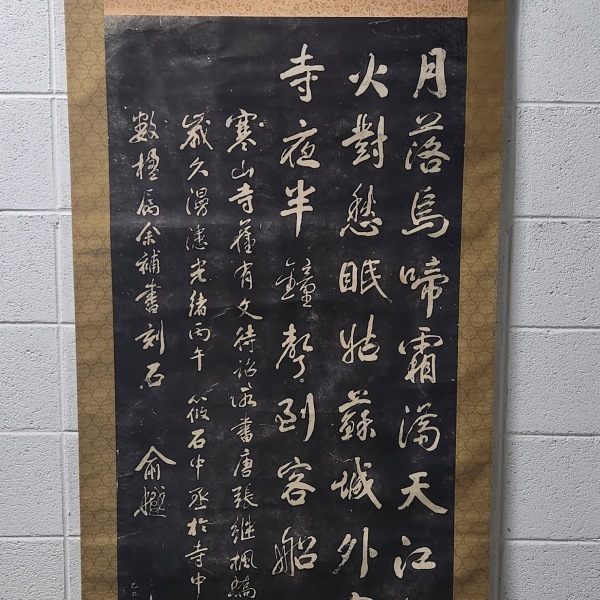 月落烏啼霜滿天江
火對愁眠姑蘇城外
寺夜半鐘聲到客船
寒山寺舊有文待詔所書唐張繼楓橋
歲久漫漶光緒丙午 筱石中丞於寺中
數楹屬余補書刻石 俞樾